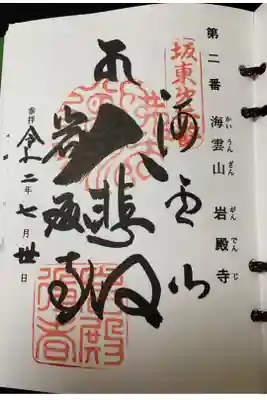 第二番　海雲山　岩殿寺
かいうんざん　がんでんじ
坂東第二番
海雲山
大悲殿
岩殿寺
参拝 令和二年七月 日